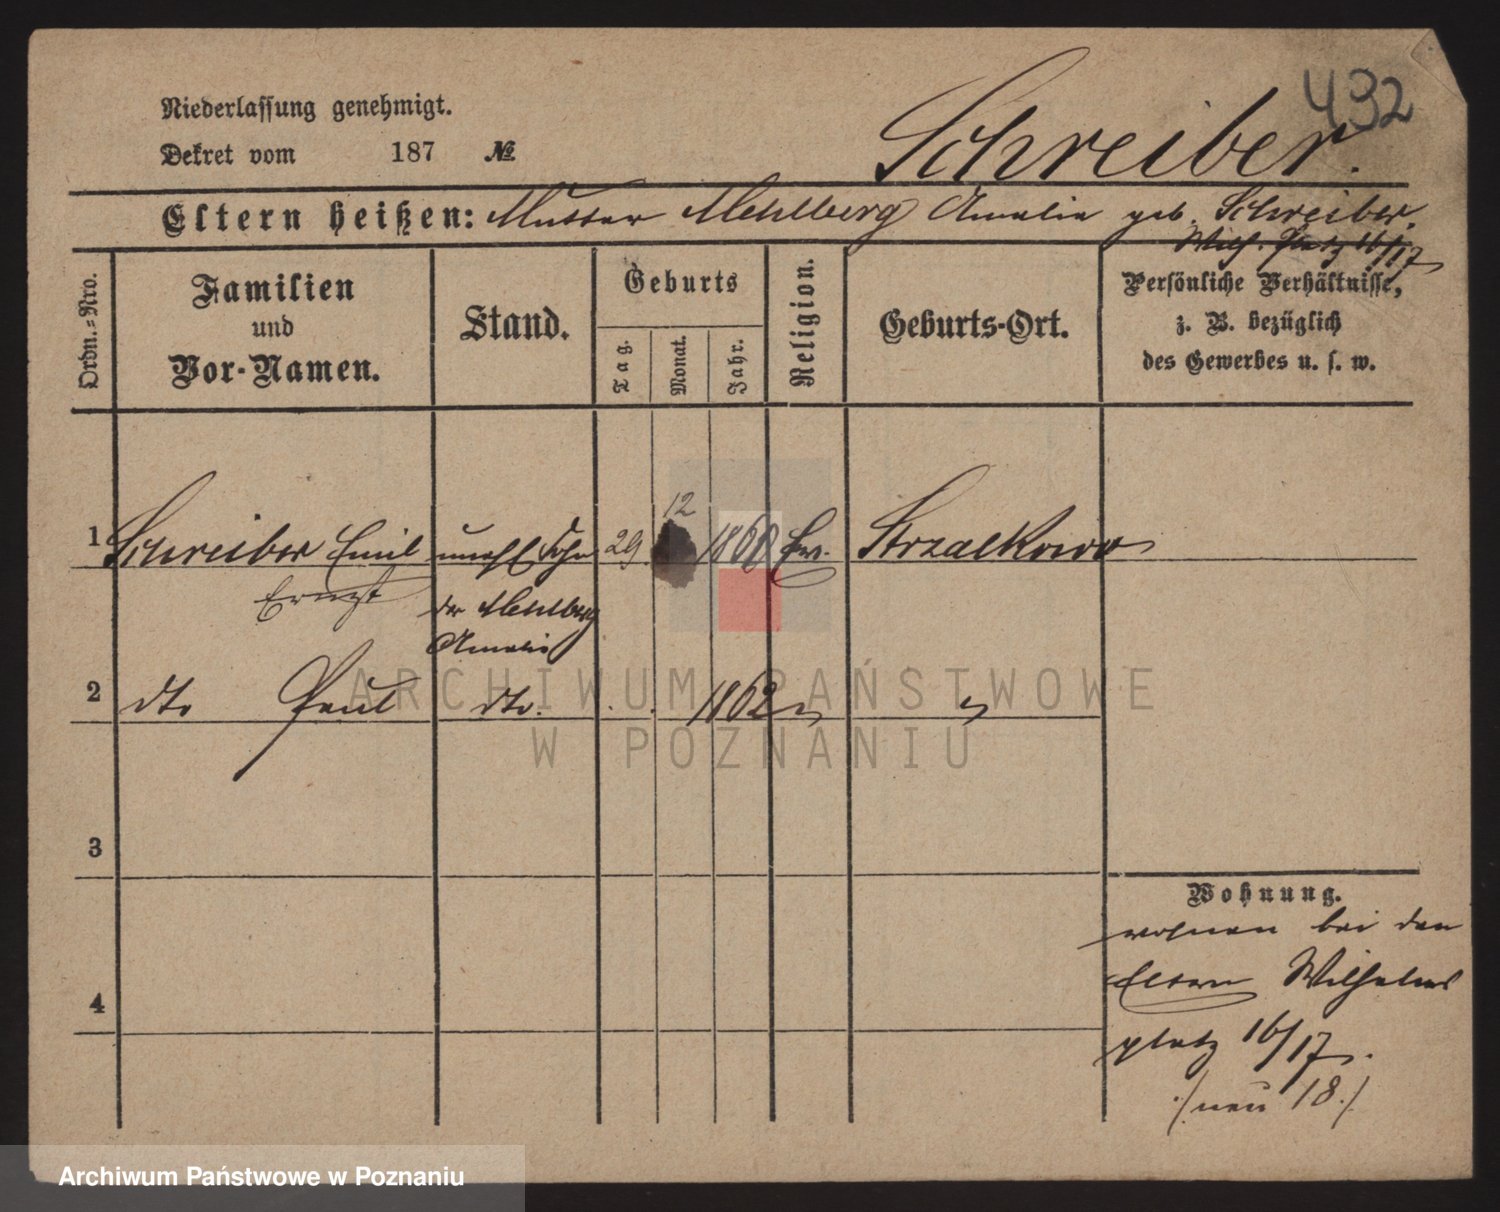 432
Niederlassung genehmigt.
Schreiber.
Dekret vom 187 №
Eltern heißen: Mutter Mehlberg Amalie geb. Schreiber.
Wilh. Platz 16/17
Ordn.-Nro.
Familien
und
Vor-Namen.
Stand.
Geburts
Tag.
Monat.
Jahr.
Religion.
Geburts-Ort.
Persönliche Verhältnisse,
z. B. bezüglich
des Gewerbes u. s. w.
12
1 Schreiber Emil unehl. Sohn 29. 1860 Ev. Strzalkowo
Ernst
der Mehlberg
Amalie
2 dto Paul dto. 1862 " "
3
4
Wohnung.
wohnen bei den
Eltern Wilhelms
platz 16/17.
./neu 18./
ARCHIWUM PAŃSTWOWE
W POZNANIU
Archiwum Państwowe w Poznaniu